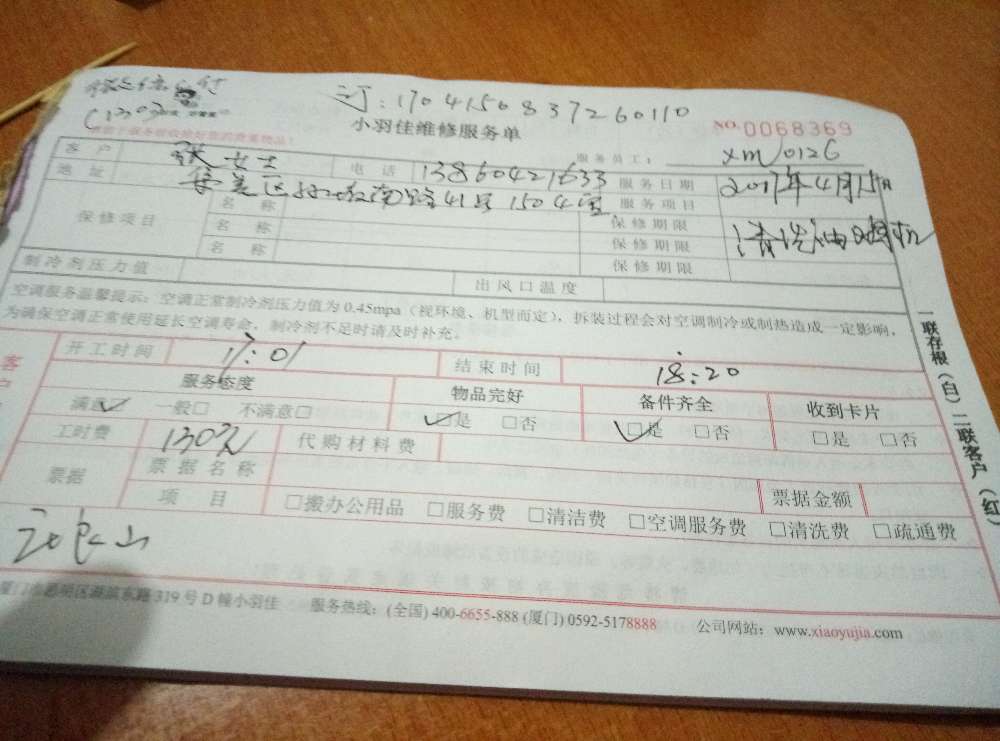 微信支付
(130元
订:170415083726011​0
小羽佳维修服务单
NO.0068369
服务员工: xm0126
客户 张女士 电话 13860421633 服务日期 2017年4月15日
地址 集美区 南路41号1504室 服务项目 清洗油烟机
保修项目
名称 保修期限
名称 保修期限
名称 保修期限
制冷剂压力值 出风口温度
空调服务温馨提示:空调正常制冷剂压力值为0.45mpa(视环境、机型而定),拆装过程会对空调制冷或制热造成一定影响,
为确保空调正常使用延长空调寿命,制冷剂不足时请及时补充。
开工时间 17:01 结束时间 18:20
服务态度 物品完好 备件齐全 收到卡片
满意☑ 一般□ 不满意□ ☑是 □否 ☑是 □否 □是 □否
工时费 130元 代购材料费
票据 票据名称 票据金额
项目 □搬办公用品 □服务费 □清洁费 □空调服务费 □清洗费 □疏通费
厦门市思明区湖滨东路319号D幢小羽佳 服务热线:(全国) 400-6655-888 (厦门) 0592-5178888 公司网站:www.xiaoyujia.com
一联存根(白)二联客户(红)
客户